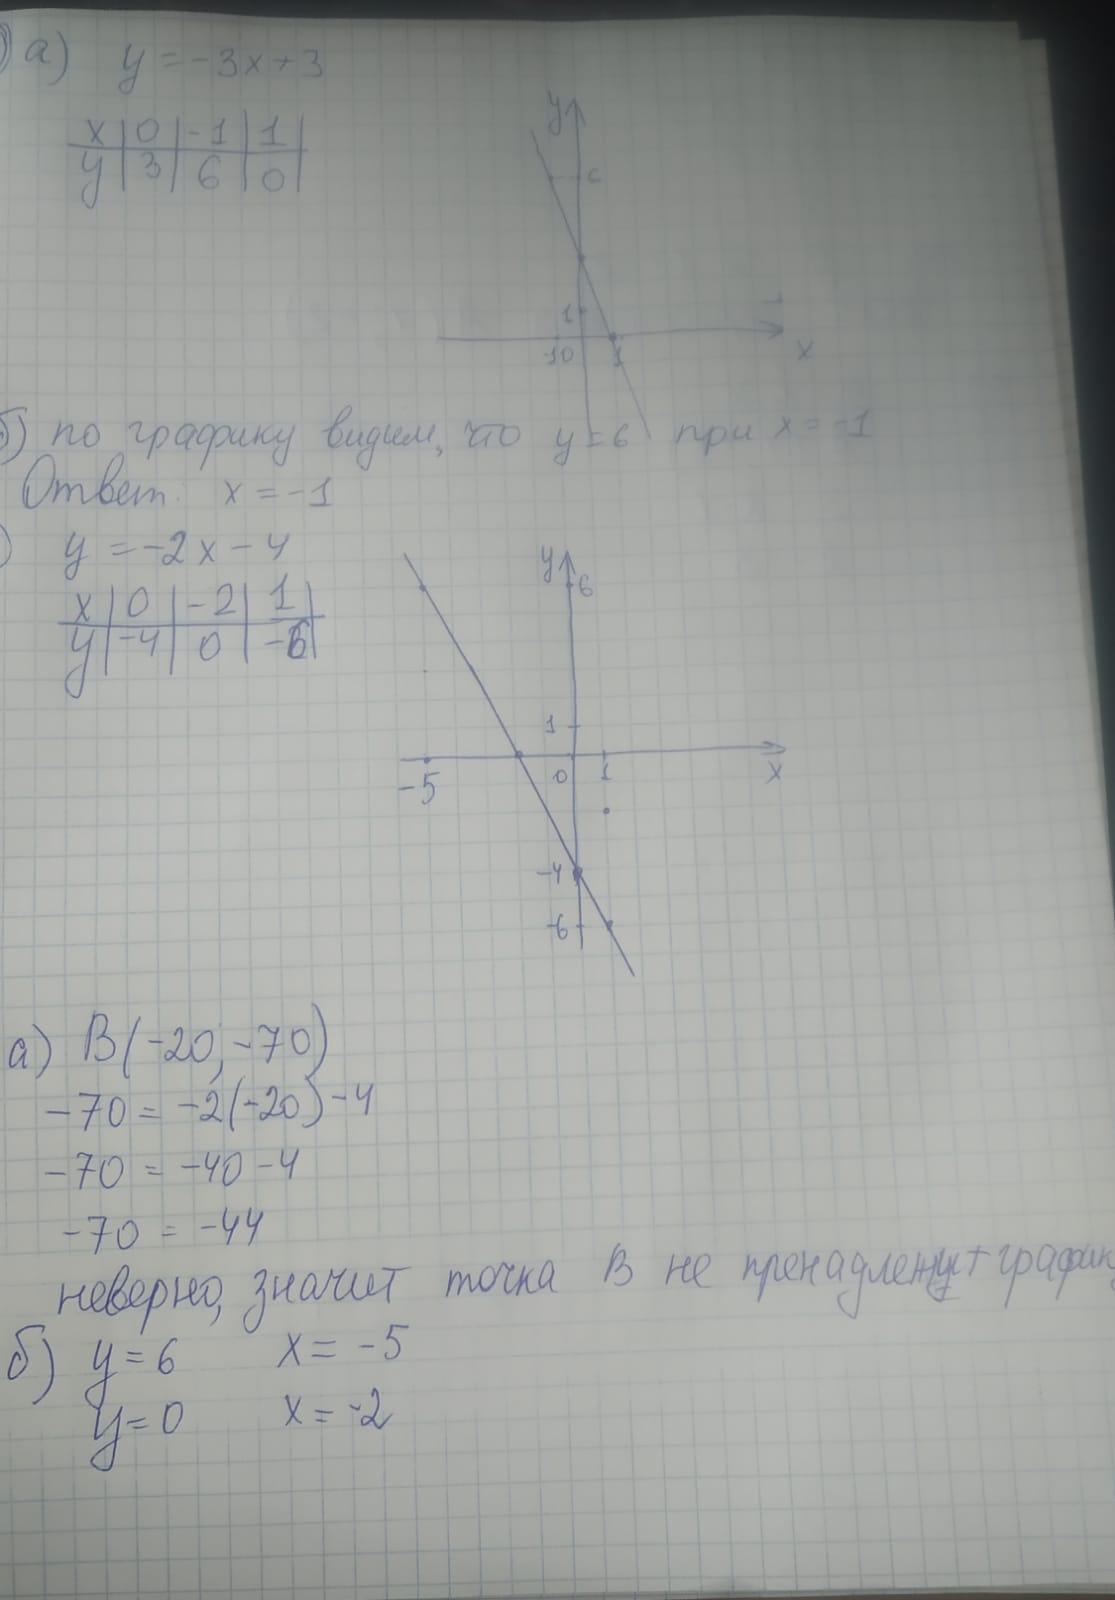 а) y = -3x+3
x | 0 | -1 | 1 |
y | 3 | 6 | 0 |
y
6
1
-1 0 1
x
б) по графику видим, что y = 6 при x = -1
Ответ: x = -1
) y = -2x - 4
x | 0 | -2 | 1 |
y | -4 | 0 | -6 |
y
6
1
-5 0 1 x
-4
-6
а) B(-20; -70)
-70 = -2(-20) - 4
-70 = -40 - 4
-70 = -44
неверно, значит точка B не пренадлежит графику
б) y = 6 x = -5
y = 0 x = -2